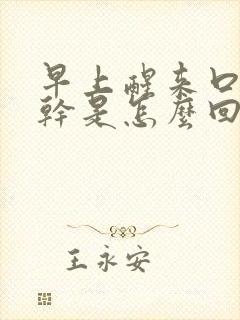 早上醒来口
幹是怎麼回
王永安